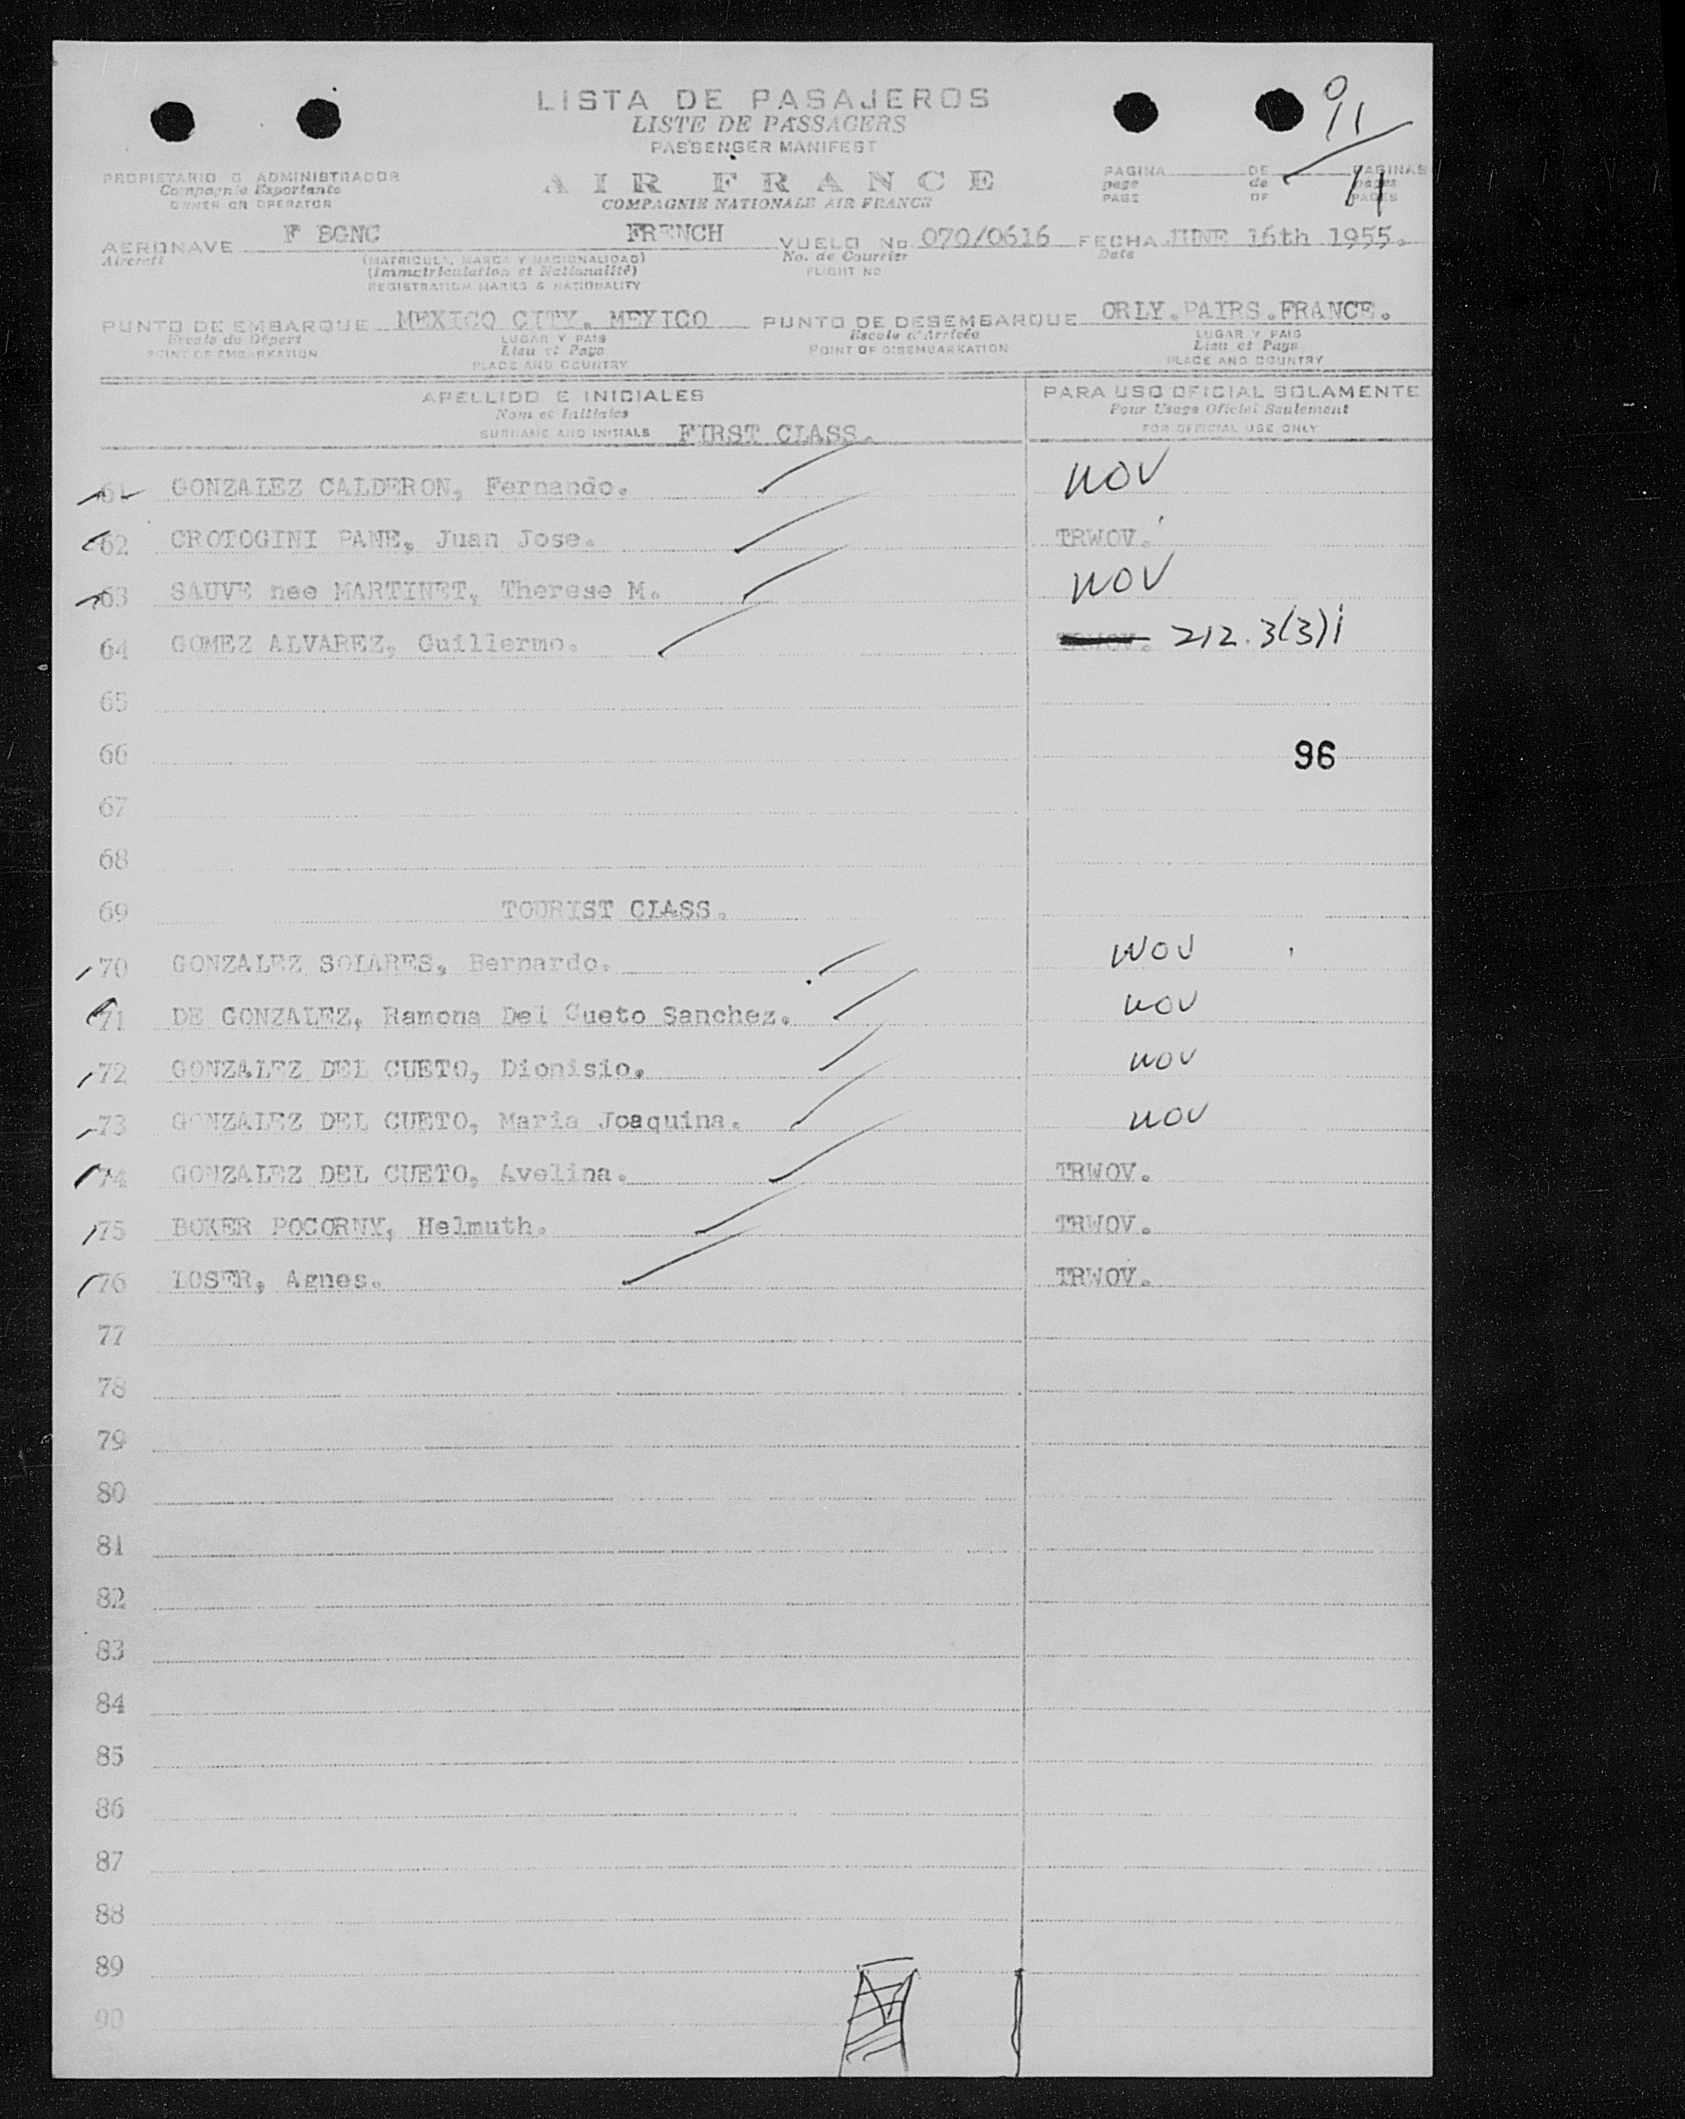 LISTA DE PASAJEROS
LISTE DE PASSAGERS
PASSENGER MANIFEST
11
11
PROPIETARIO O ADMINISTRADOR
Compagnie Exportante
OWNER OR OPERATOR
AIR FRANCE
COMPAGNIE NATIONALE AIR FRANCE
PAGINA DE PAGINAS
page de pages
PAGE OF PAGES
AERONAVE F BGNC FRENCH VUELO No 070/0616 FECHA JUNE 16th 1955.
Aircraft (MATRICULA, MARCA Y NACIONALIDAD) No. de Courrier Date
(Immatriculation et Nationalité) FLIGHT NO
REGISTRATION MARKS & NATIONALITY
PUNTO DE EMBARQUE MEXICO CITY. MEXICO PUNTO DE DESEMBARQUE ORLY.PAIRS.FRANCE.
Escale du Départ LUGAR Y PAIS Escale d'Arrivée LUGAR Y PAIS
POINT OF EMBARKATION Lieu et Pays POINT OF DISEMBARKATION Lieu et Pays
PLACE AND COUNTRY PLACE AND COUNTRY
APELLIDO E INICIALES PARA USO OFICIAL SOLAMENTE
Nom et Initiales Pour Usage Officiel Seulement
SURNAME AND INITIALS FIRST CLASS. FOR OFFICIAL USE ONLY
61 GONZALEZ CALDERON, Fernando. WOV
62 CROTOGINI PANE, Juan Jose. TRWOV.
63 SAUVE nee MARTINET, Therese M. WOV
64 GOMEZ ALVAREZ, Guillermo. TRWOV. 212.3(3)i
65
66 96
67
68
69 TOURIST CLASS.
70 GONZALEZ SOLARES, Bernardo. WOV
71 DE GONZALEZ, Ramona Del Cueto Sanchez. WOV
72 GONZALEZ DEL CUETO, Dionisio. WOV
73 GONZALEZ DEL CUETO, Maria Joaquina. WOV
74 GONZALEZ DEL CUETO, Avelina. TRWOV.
75 BOKER POCORNY, Helmuth. TRWOV.
76 LOSER, Agnes. TRWOV.
77
78
79
80
81
82
83
84
85
86
87
88
89
90